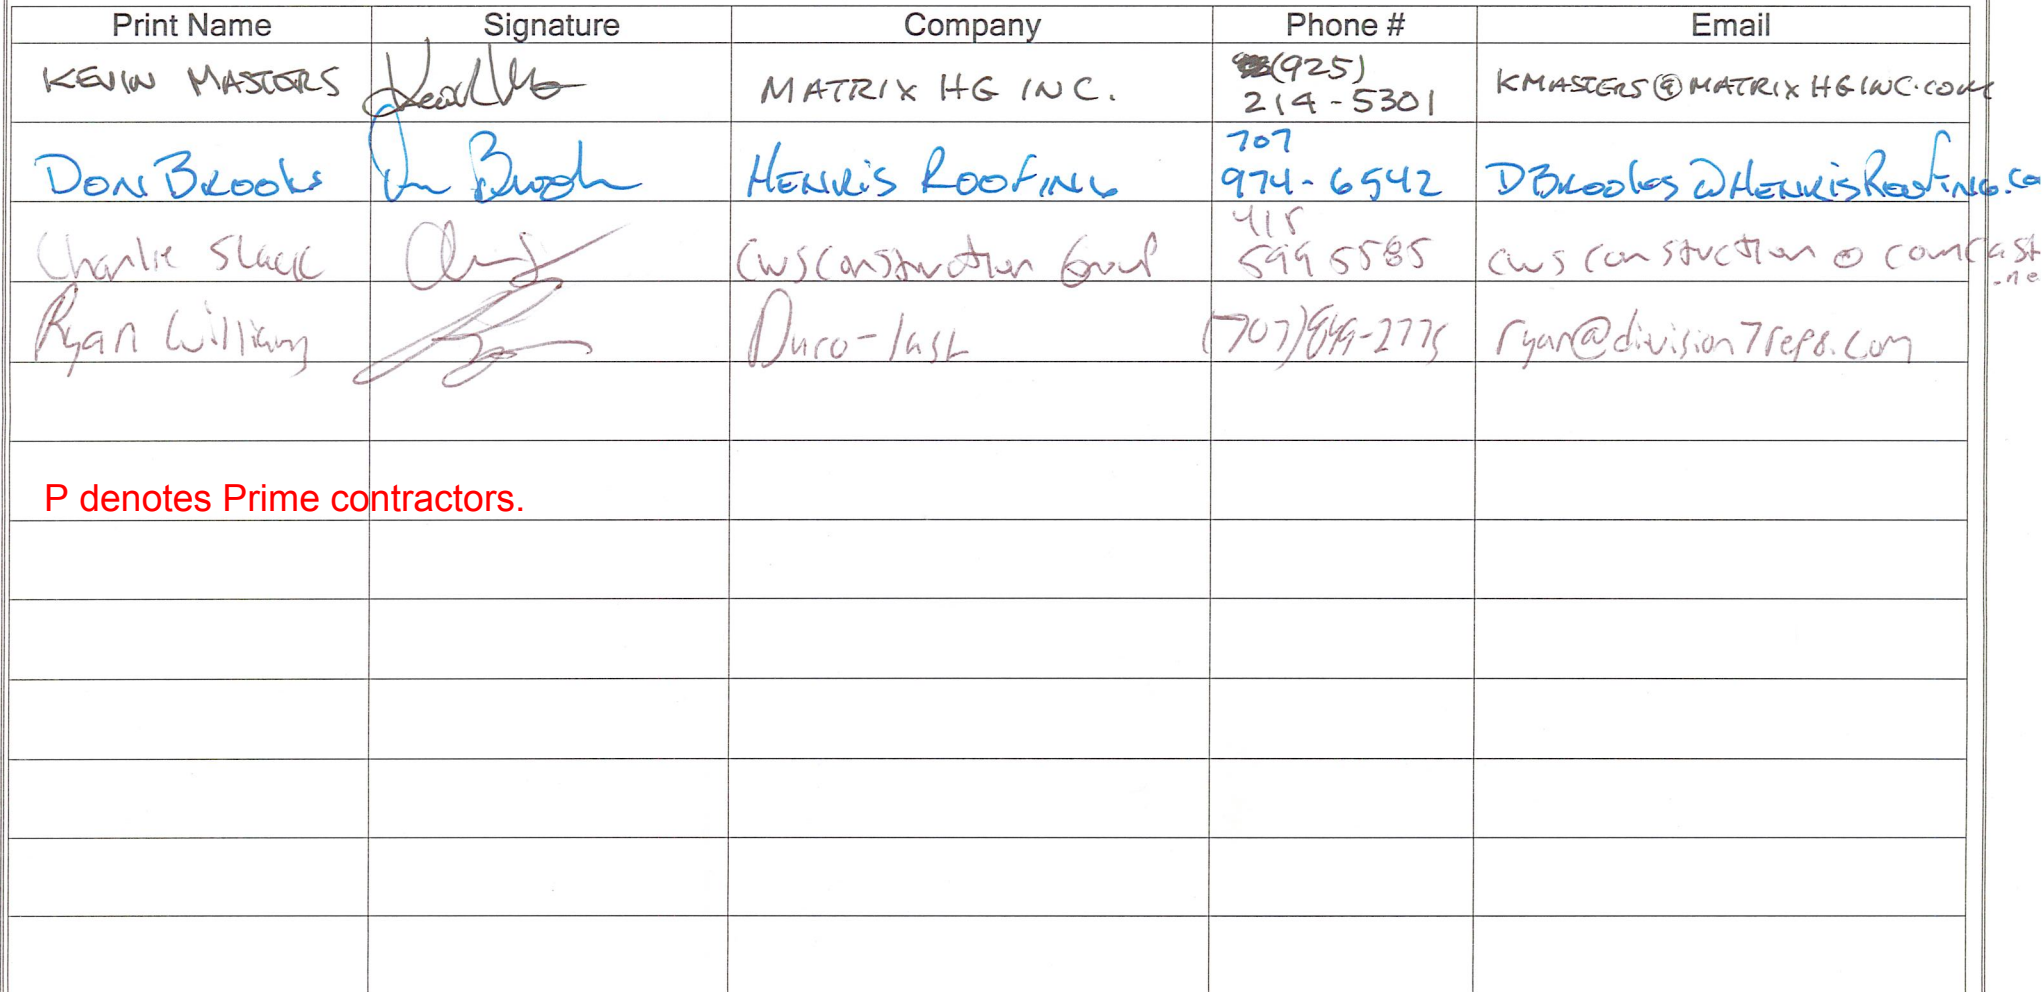 Print Name Signature Company Phone # Email
KEVIN MASTERS MATRIX HG INC. (925) 214-5301 KMASTERS@MATRIXHGINC.COM
DON BROOKS HENRIS ROOFING 707 974-6542 DBROOKS@HENRISROOFING.CO
Charlie Slack CWS Construction Group 415 599 5585 cwsconstruction@comcast.ne
Ryan Williams Duro-last ryan@division7reps.com
P denotes Prime contractors.